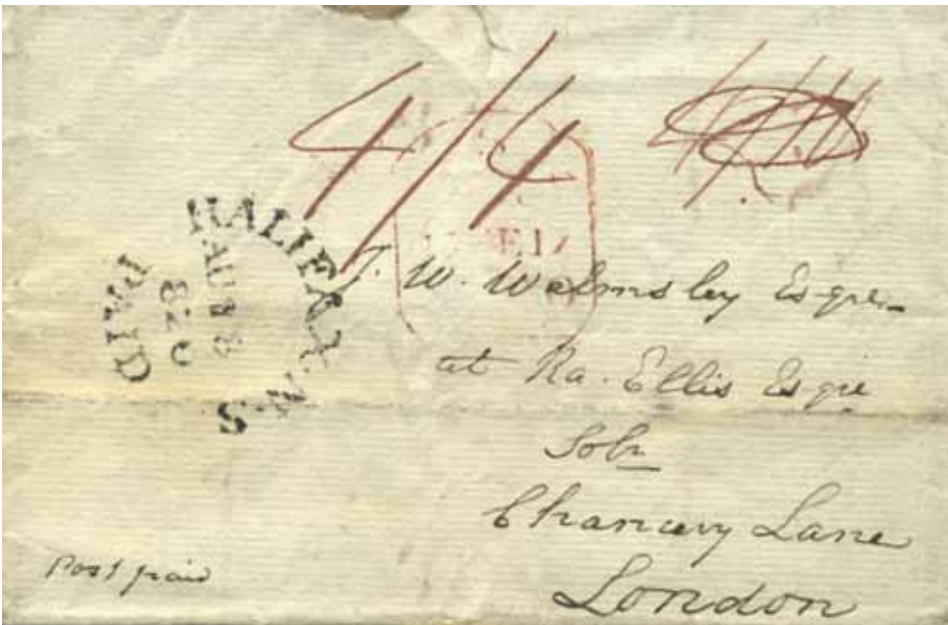 4/4
HALIFAX·N·S
AU 8
PAID
J. W. Walmsley Esqre
at Ra. Ellis Esqre
Solr
Chancery Lane
London
Post paid